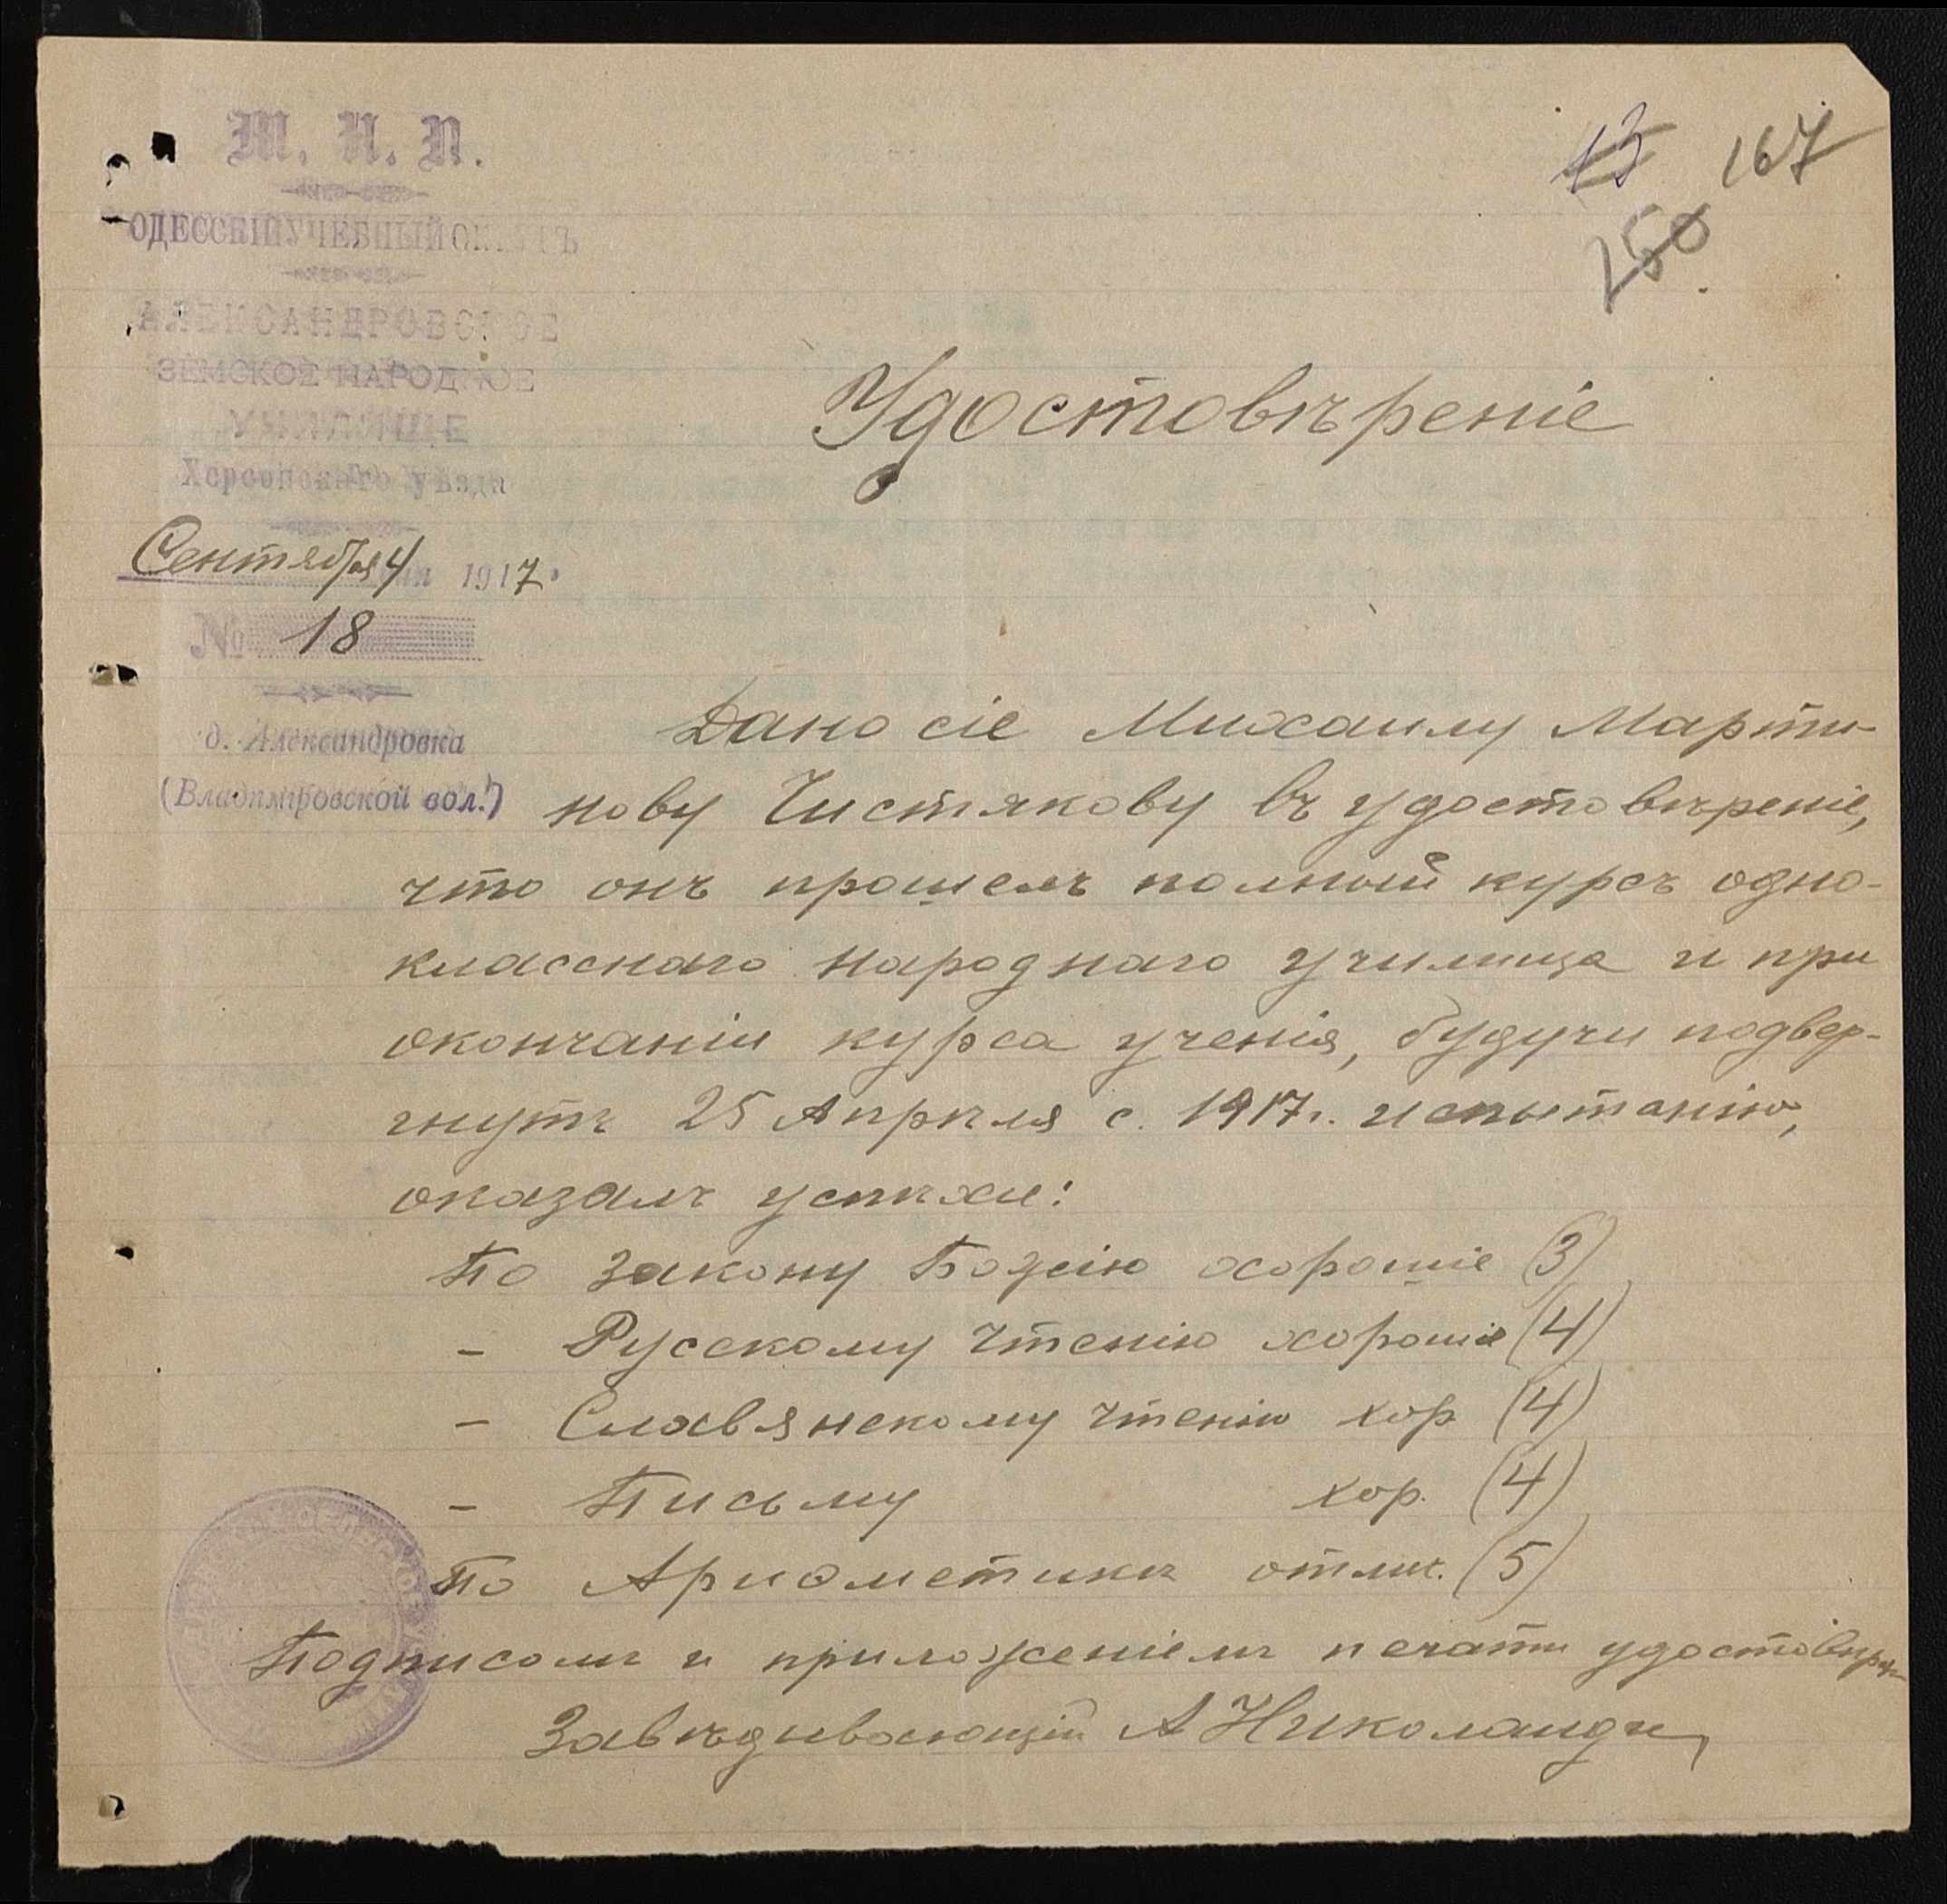 М. Н. П.
ОДЕССКІЙ УЧЕБНЫЙ ОКРУГЪ
АЛЕКСАНДРОВСКОЕ
ЗЕМСКОЕ НАРОДНОЕ
УЧИЛИЩЕ
Херсонскаго уѣзда
Сентября 4 дня 1917
№ 18
д. Александровка
(Владиміровской вол.)
13 167
250
Удостовѣреніе
Дано сіе Михаилу Марти-
нову Чистякову въ удостовѣреніе,
что онъ прошелъ полный курсъ одно-
класснаго народнаго училища и при
окончаніи курса ученія, будучи подвер-
гнутъ 25 Апрѣля с. 1917г. испытанію,
оказалъ успѣхи:
По Закону Божію хорошіе (3)
- Русскому чтенію хорошіе (4)
- Славянскому чтенію хор (4)
- Письму хор. (4)
По Ариѳметикѣ отлич. (5)
Подписомъ и приложеніемъ печати удостовѣряю
Завѣдывающій А Николаиди